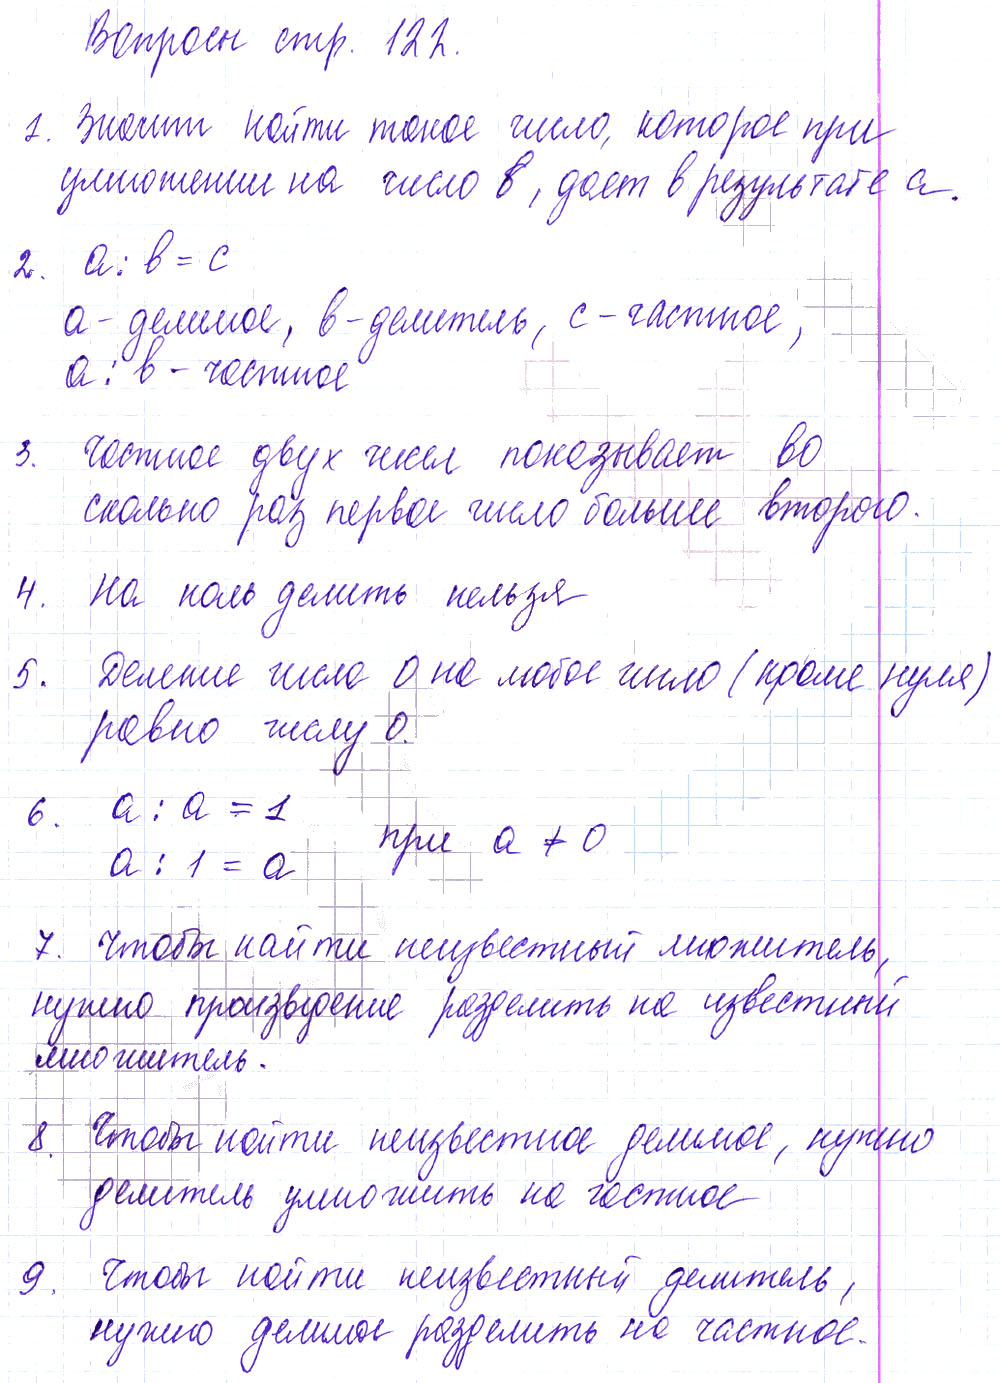 Вопросы стр. 122.
1. Значит найти такое число, которое при
умножении на число в, дает в результате а.
2. а : в = с
а - делимое, в - делитель, с - частное,
а : в - частное
3. Частное двух чисел показывает во
сколько раз первое число больше второго.
4. На ноль делить нельзя
5. Деление числа 0 на любое число (кроме нуля)
равно числу 0.
6. а : а = 1
а : 1 = а
при а ≠ 0
7. Чтобы найти неизвестный множитель,
нужно произведение разделить на известный
множитель.
8. Чтобы найти неизвестное делимое, нужно
делитель умножить на частное
9. Чтобы найти неизвестный делитель,
нужно делимое разделить на частное.